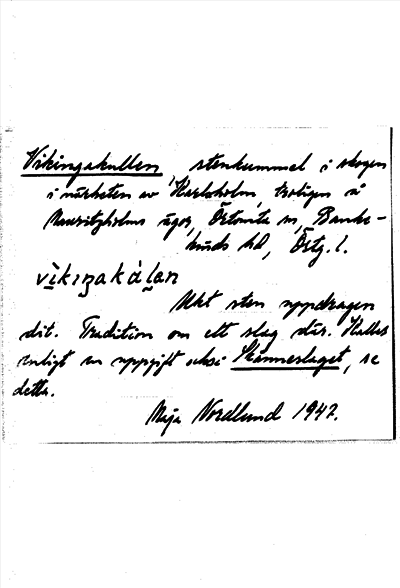 Vikingakullen, stenkummel i skogen
i närheten av Karlsholm, troligen å
Mauritzholms ägor, Östorita sn, Banke-
kinds hd, Östg. l.
vìkiŋakálan
Mkt sten uppdragen
dit. Tradition om ett slag där. Kallas
enligt en uppgift också Skännerslaget, se
detta.
Maja Nordlund 1947.